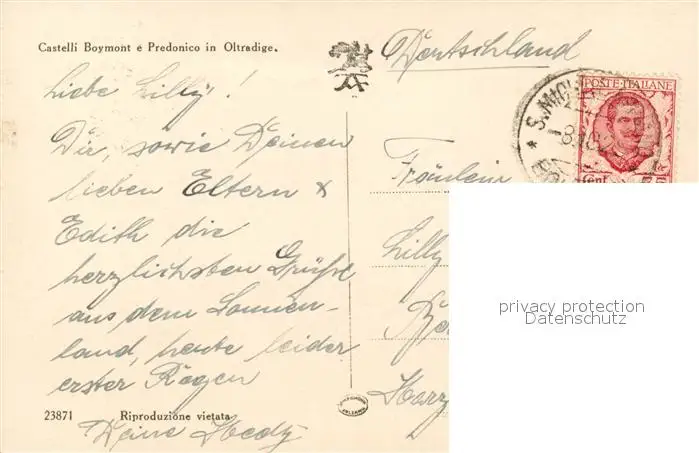 Castelli Boymont e Predonico in Oltradige.
Liebe Lilly!
Dir, sowie Deinen
lieben Eltern &
Edith die
herzlichsten Grüße
aus dem Sonnen-
land, heute leider
erster Regen
Deine Hedy
23871 Riproduzione vietata
Deutschland
Fräulein
Lilly
Harz
POSTE ITALIANE
Cent
S. MICH
privacy protection
Datenschutz